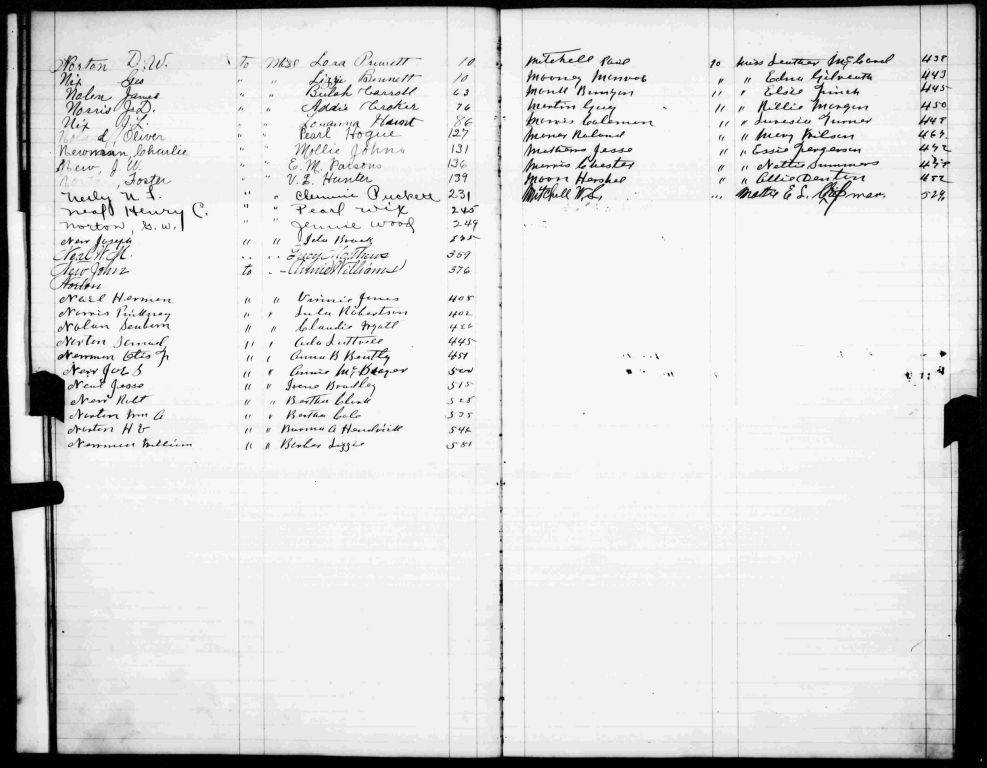 Norton D. W. to Miss Lora Pruwett 10
Nix Gus " " Lizzie Bennett 10
Nolen James " " Bulah Carroll 63
Norris J. D. " " Addie Croker 76
Nix J. L. " " Louanna Hamt 86
Oliver " " Pearl Hogue 127
Newman, Charlie " " Mollie Johns 131
New, J. W. " " E. M. Parsons 136
, Foster " " V. L. Hunter 139
Neely N. L. " " Clemmie Puckett 231
Neal Henry C. " " Pearl Wix 245
Norton, G. W. " " Jennie Wood 249
New Joseph " " Ida
Neal W. M. " " Lucy Mathews 359
New John to " Annie Williams 376
Norton
Nael Herman " " Vinnie Jones 405
Norris Pinkney " " Lula Robertson 402
Nolan Seaborn " " Claudie Wyatt 426
Norton Samuel " " Ada Luttrell 445
Newman Otis Jr " " Anna B Bently 451
New Joe S " " Annie 500
Neal Jesse " " Irene Bradley 515
New Robt " " Bertha Clark 525
Norton Wm A " " Bertha Cole 535
Norton H " " Burma A Hendrick 546
Newman William " " Barber Lizzie 551
Mitchell Paul to Miss Leuther McCleod 438
Mooney Monroe " " Edna Gilreath 443
Mantt Bunyon " " Elsie Finch 445
Martin Guy " " Millie Morgan 450
Morris Coleman " " Turner 448
Moner Roland " " Mary Wilson 464
Mathews Jesse " " Essie Fergerson 472
Morris Chester " " Nettie Summers 478
Moon Hershel " " Allie Denton 452
Mitchell W. S. " Mattie E. L. Chapman 529